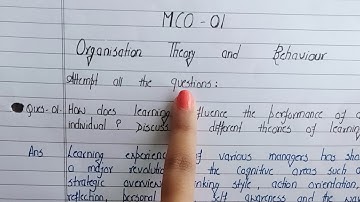 MCO-01
Organisation Theory and Behaviour
Attempt all the questions:
Ques-01- How does learning influence the performance of a
individual? Discuss different theories of learning
Ans Learning experience of various managers has sho
a major revolution the cognitive areas such a
strategic overview, thinking style, action orientation,
reflection, personal self awareness and the